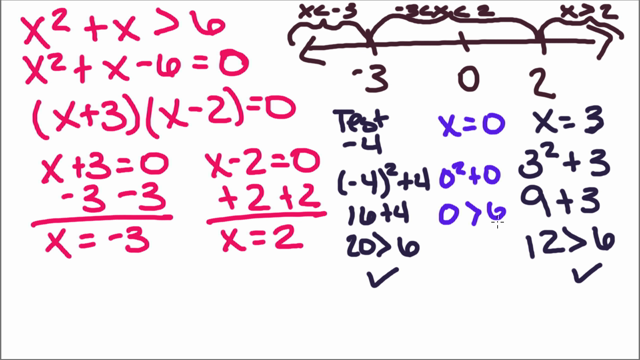 x² + x > 6
x² + x - 6 = 0
(x+3)(x-2)=0
x+3=0
-3 -3
x = -3
x-2=0
+2 +2
x = 2
x<-3
-3<x<2
x>2
-3
0
2
Test
-4
(-4)²+4
16+4
20>6
✓
x=0
0²+0
0>6
x=3
3²+3
9+3
12>6
✓